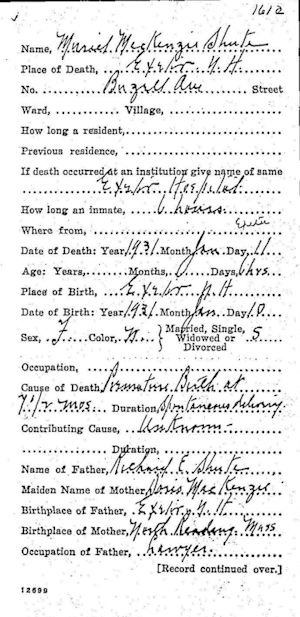 1612
Name, Muriel MacKenzie Shute
Place of Death, Exeter N.H.
No. Buzzell Ave Street
Ward, Village,
How long a resident,
Previous residence,
If death occurred at an institution give name of same
Exeter Hospital
How long an inmate, 6 hours
Where from, Exeter
Date of Death: Year, 1931 Month, Jan Day, 11
Age: Years, Months, 0 Days, 6 hrs.
Place of Birth, Exeter N.H.
Date of Birth: Year 1931 Month Jan Day, 10
Sex, F Color, W. } Married, Single, Widowed or Divorced } S
Occupation,
Cause of Death, Premature Birth at
7 1/2 mos. Duration, Spontaneous delivery
Contributing Cause, Unknown
Duration,
Name of Father, Richard E. Shute
Maiden Name of Mother, Doris MacKenzie
Birthplace of Father, Exeter, N.H.
Birthplace of Mother, North Reading Mass
Occupation of Father, Lawyer
[Record continued over.]
12699